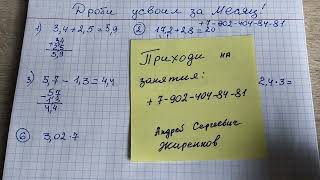 Дроби усвоил за месяц!
+7-902-404-84-81
1) 3,4+2,5=5,9
2) 17,2+2,8=20
5,9
3) 5,7-1,3=4,4
-57
13
4,4
2,4·3=
6) 3,02·7
Приходи на
занятия:
+7-902-404-84-81
Андрей Сергеевич
Жиренков